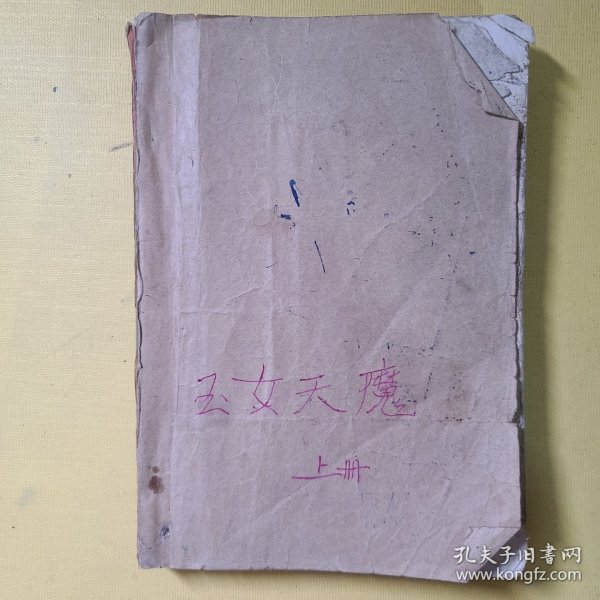 玉女天魔
上册
孔夫子旧書网
www.kongfz.com